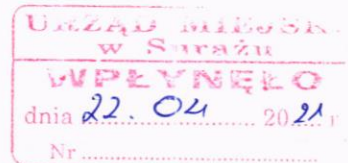 URZĄD MIEJSK
w Surażu
WPŁYNĘŁO
dnia 22. 04 2021 r
Nr